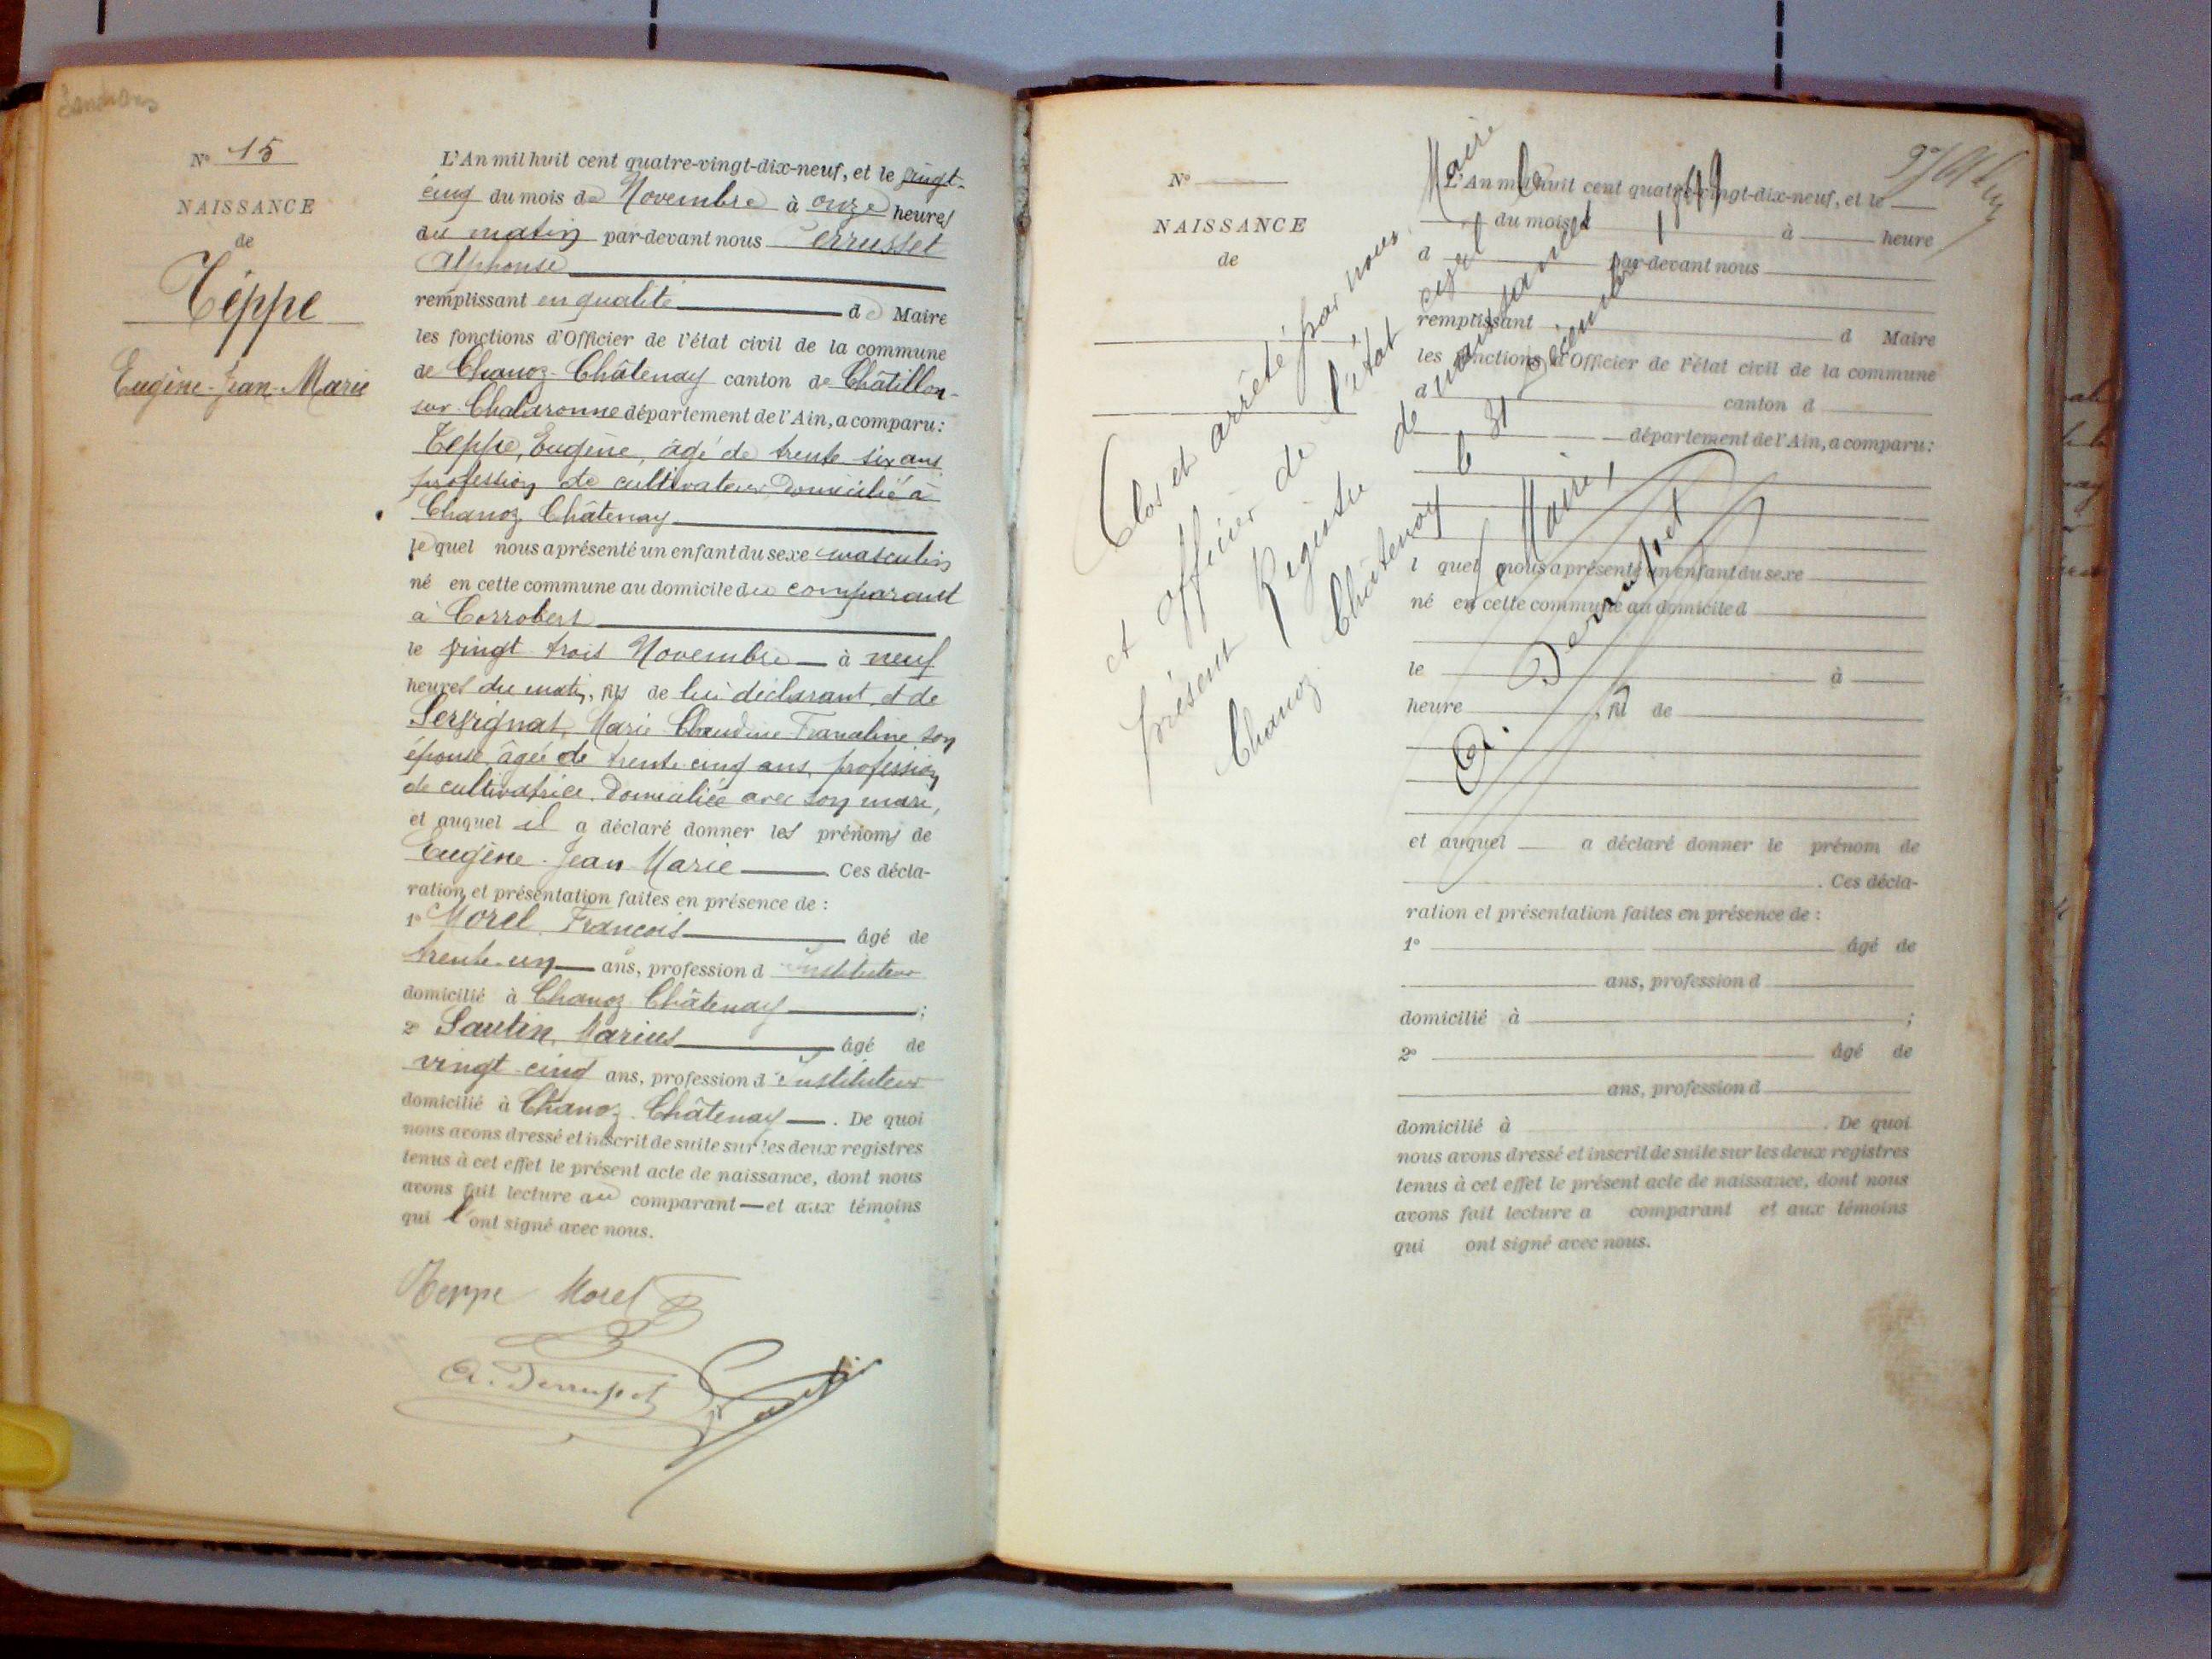 N° 15
NAISSANCE
de
Téppe
Eugène-Jean-Marie
L'An mil huit cent quatre-vingt-dix-neuf, et le vingt-
cinq du mois de Novembre à onze heures
du matin par-devant nous Perrusset
Alphonse
remplissant en qualité de Maire
les fonctions d'Officier de l'état civil de la commune
de Chanoz-Châtenay canton de Châtillon-
sur-Chalaronne département de l'Ain, a comparu:
Teppe, Eugène, âgé de trente six ans
profession de cultivateur, domicilié à
Chanoz Châtenay
lequel nous a présenté un enfant du sexe masculin
né en cette commune au domicile du comparant
à Corrobert
le vingt trois Novembre à neuf
heures du matin, fils de lui déclarant et de
Servignat, Marie Claudine Franceline son
épouse, âgée de trente cinq ans, profession
de cultivatrice. Domiciliée avec son mari,
et auquel il a déclaré donner les prénoms de
Eugène-Jean Marie. Ces décla-
ration et présentation faites en présence de :
1° Morel François âgé de
trente-un ans, profession d'instituteur
domicilié à Chanoz Châtenay ;
2° Sautin, Marius âgé de
vingt-cinq ans, profession d'instituteur
domicilié à Chanoz-Châtenay. De quoi
nous avons dressé et inscrit de suite sur les deux registres
tenus à cet effet le présent acte de naissance, dont nous
avons fait lecture au comparant et aux témoins
qui l'ont signé avec nous.
Teppe Morel
A. Perrusset
N°
NAISSANCE
de
L'An mil huit cent quatre-vingt-dix-neuf, et le
du mois d à heure
d par-devant nous
remplissant d Maire
les fonctions d'Officier de l'état civil de la commune
d canton d
département de l'Ain, a comparu:
l quel nous a présenté un enfant du sexe
né en cette commune au domicile d
le à
heure , fil de
et auquel a déclaré donner le prénom de
. Ces décla-
ration et présentation faites en présence de :
1° âgé de
ans, profession d
domicilié à ;
2° âgé de
ans, profession d
domicilié à . De quoi
nous avons dressé et inscrit de suite sur les deux registres
tenus à cet effet le présent acte de naissance, dont nous
avons fait lecture a comparant et aux témoins
qui ont signé avec nous.
Clos et arrêté par nous Maire
et officier de l'état civil le
présent Registre de naissances
Chanoz Châtenay le 31 Décembre 1899
Le Maire,
A. Perrusset